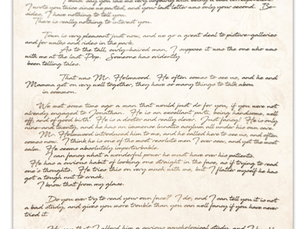 I wrote you twice since we parted, and your last letter was only your second. Be-
sides, I have nothing to tell you.
There is really nothing to interest you.
Town is very pleasant just now, and we go a great deal to picture-galleries
and for walks and rides in the park.
As to the tall, curly-haired man, I suppose it was the one who was
with me at the last Pop. Someone has evidently
been telling tales.
That was Mr. Holmwood. He often comes to see us, and he and
Mamma get on very well together, they have so many things to talk about
in common.
We met some time ago a man that would just do for you, if you were not
already engaged to Jonathan. He is an excellent parti, being handsome, well
off, and of good birth. He is a doctor and really clever. Just fancy! He is only
nine-and twenty, and he has an immense lunatic asylum all under his own care.
Mr. Holmwood introduced him to me, and he called here to see us, and often
comes now. I think he is one of the most resolute men I ever saw, and yet the most
calm. He seems absolutely imperturbable.
I can fancy what a wonderful power he must have over his patients.
He has a curious habit of looking one straight in the face, as if trying to read
one's thoughts. He tries this on very much with me, but I flatter myself he has
got a tough nut to crack.
I know that from my glass.
Do you ever try to read your own face? I do, and I can tell you it is not
a bad study, and gives you more trouble than you can well fancy if you have never
tried it.